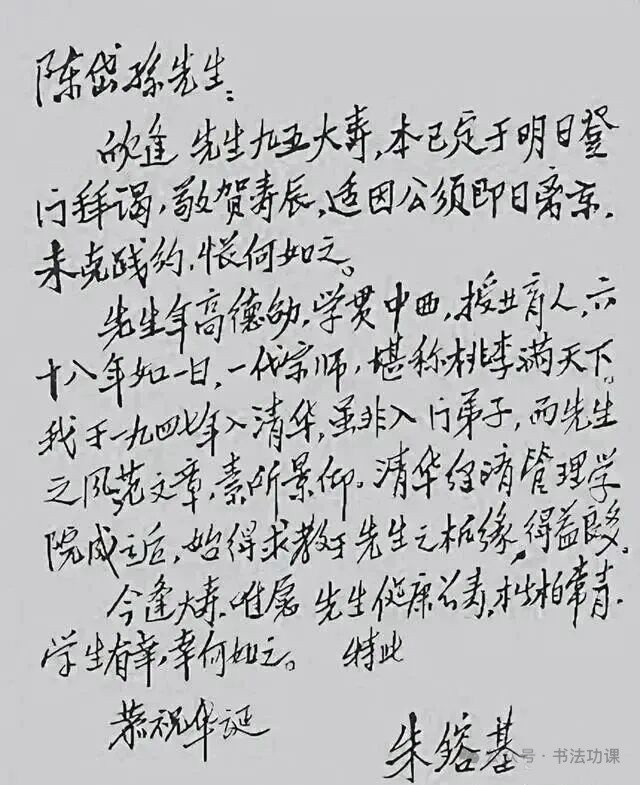 陈岱孙先生:
欣逢 先生九五大寿,本已定于明日登
门拜谒,敬贺寿辰,适因公须即日离京,
未克践约,怅何如之。
先生年高德劭,学贯中西,授业育人,六
十八年如一日,一代宗师,堪称桃李满天下。
我于一九四七年入清华,虽非入门弟子,而先生
之风范文章,素所景仰。清华经济管理学
院成立后,始得求教于先生之机缘,得益良多。
今逢大寿,唯愿 先生健康长寿,松柏常青,
学生有幸,幸何如之。 特此
恭祝华诞
朱镕基
公众号·书法功课